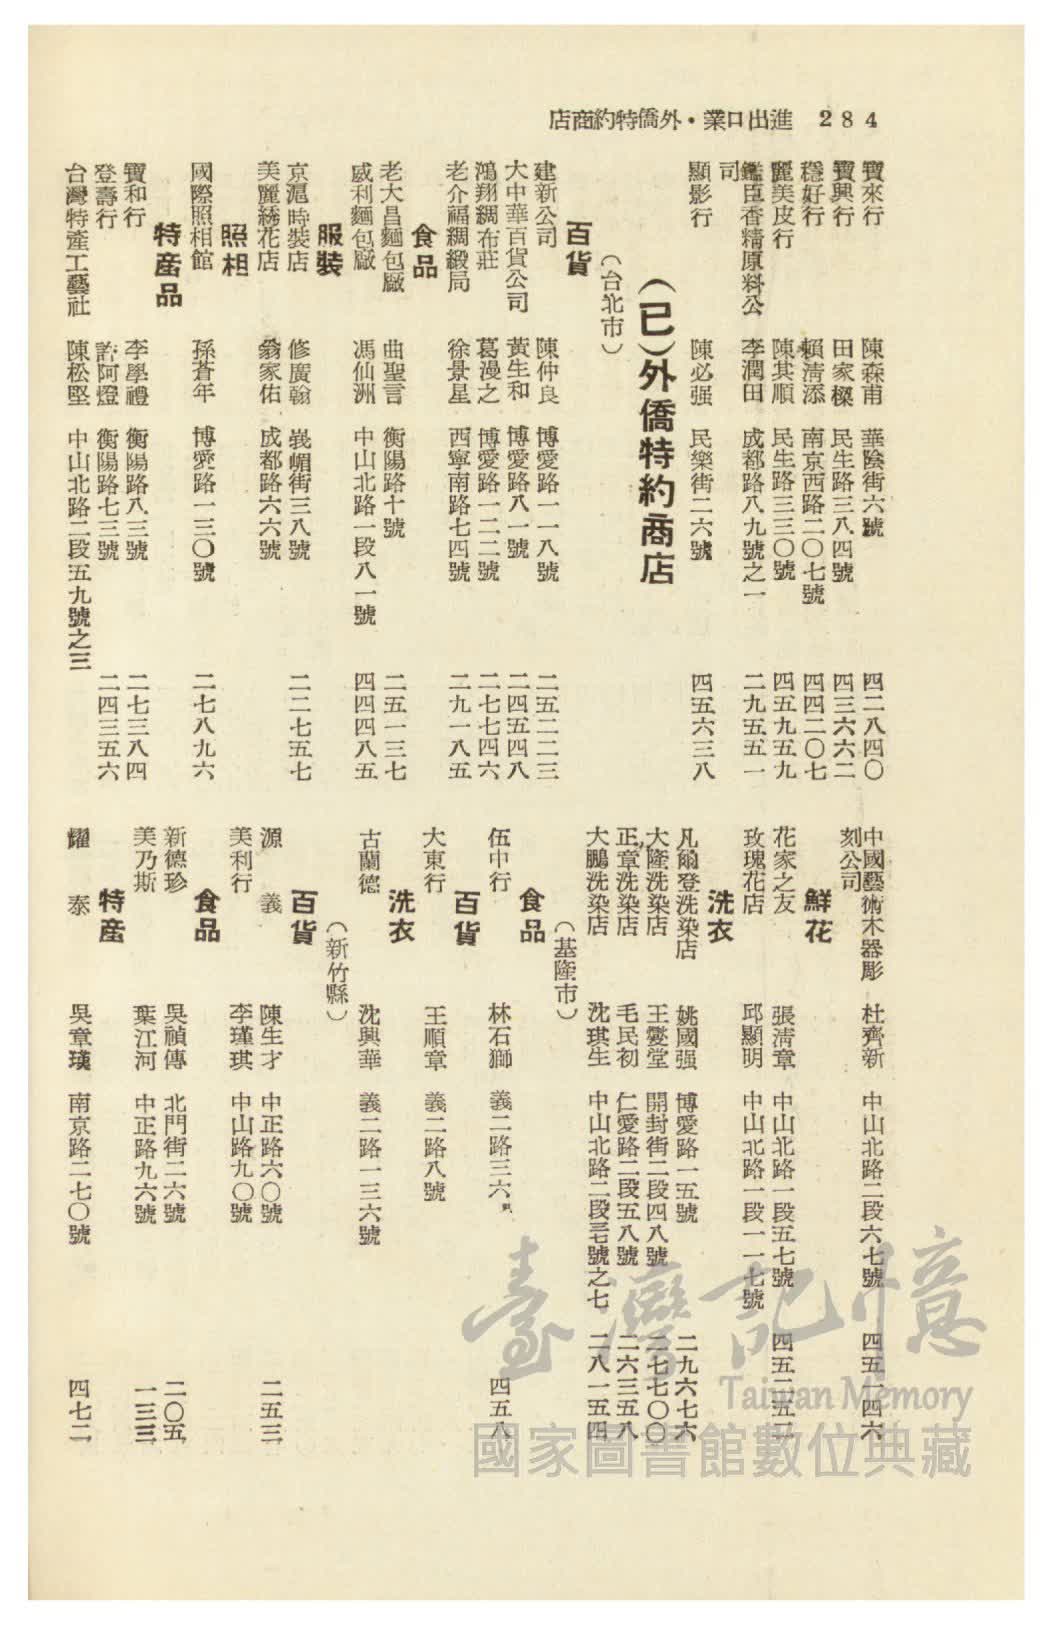 284 進出口業・外僑特約商店
寶來行 陳森甫 華陰街六號 四二八四〇
寶興行 田家樑 民生路三八四號 四三六六二
穩好行 賴清添 南京西路二〇七號 四四二〇七
麗美皮行 陳其順 民生路三三〇號 四五九五九
鑑臣香精原料公司 李潤田 成都路八九號之一 二九五五一
顯影行 陳必强 民樂街二六號 四五六三八
(已)外僑特約商店
(台北市)
百貨
建新公司 陳仲良 博愛路一一八號 二五二二三
大中華百貨公司 黃生和 博愛路八一號 二四五四八
鴻翔綢布莊 葛漫之 博愛路一二二號 二七七四六
老介福綢緞局 徐景星 西寧南路七四號 二九一八五
食品
老大昌麵包廠 曲聖言 衡陽路十號 二五一三七
威利麵包廠 馮仙洲 中山北路一段八一號 四四四八五
服裝
京滬時裝店 修廣翰 峩嵋街三八號 二二七五七
美麗綉花店 翁家佑 成都路六六號
照相
國際照相館 孫蒼年 博愛路一三〇號 二七八九六
特産品
寶和行 李學禮 衡陽路八三號 二七三八四
登壽行 許阿燈 衡陽路七三號 二四三五六
台灣特產工藝社 陳松堅 中山北路二段五九號之三
中國藝術木器彫刻公司 杜齊新 中山北路二段六七號 四五一四六
鮮花
花家之友 張清章 中山北路一段五七號 四五二五二
玫瑰花店 邱顯明 中山北路一段一一七號
洗衣
凡爾登洗染店 姚國强 博愛路一五號 二九六七六
大隆洗染店 王夔堂 開封街二段四八號 二七七〇〇
正章洗染店 毛民初 仁愛路二段五八號 二六三五八
大鵬洗染店 沈琪生 中山北路二段三號之七 二八一五四
(基隆市)
食品
伍中行 林石獅 義二路三六 四五八
百貨
大東行 王順章 義二路八號
洗衣
古蘭德 沈興華 義二路一三六號
(新竹縣)
百貨
源義 陳生才 中正路六〇號 二五三
美利行 李瑾琪 中山路九〇號
食品
新德珍 吳禎傳 北門街二六號 二〇五
美乃斯 葉江河 中正路九六號 一三三
特産
耀泰 吳章瑛 南京路二七〇號 四七二
臺灣記憶
Taiwan Memory
國家圖書館數位典藏